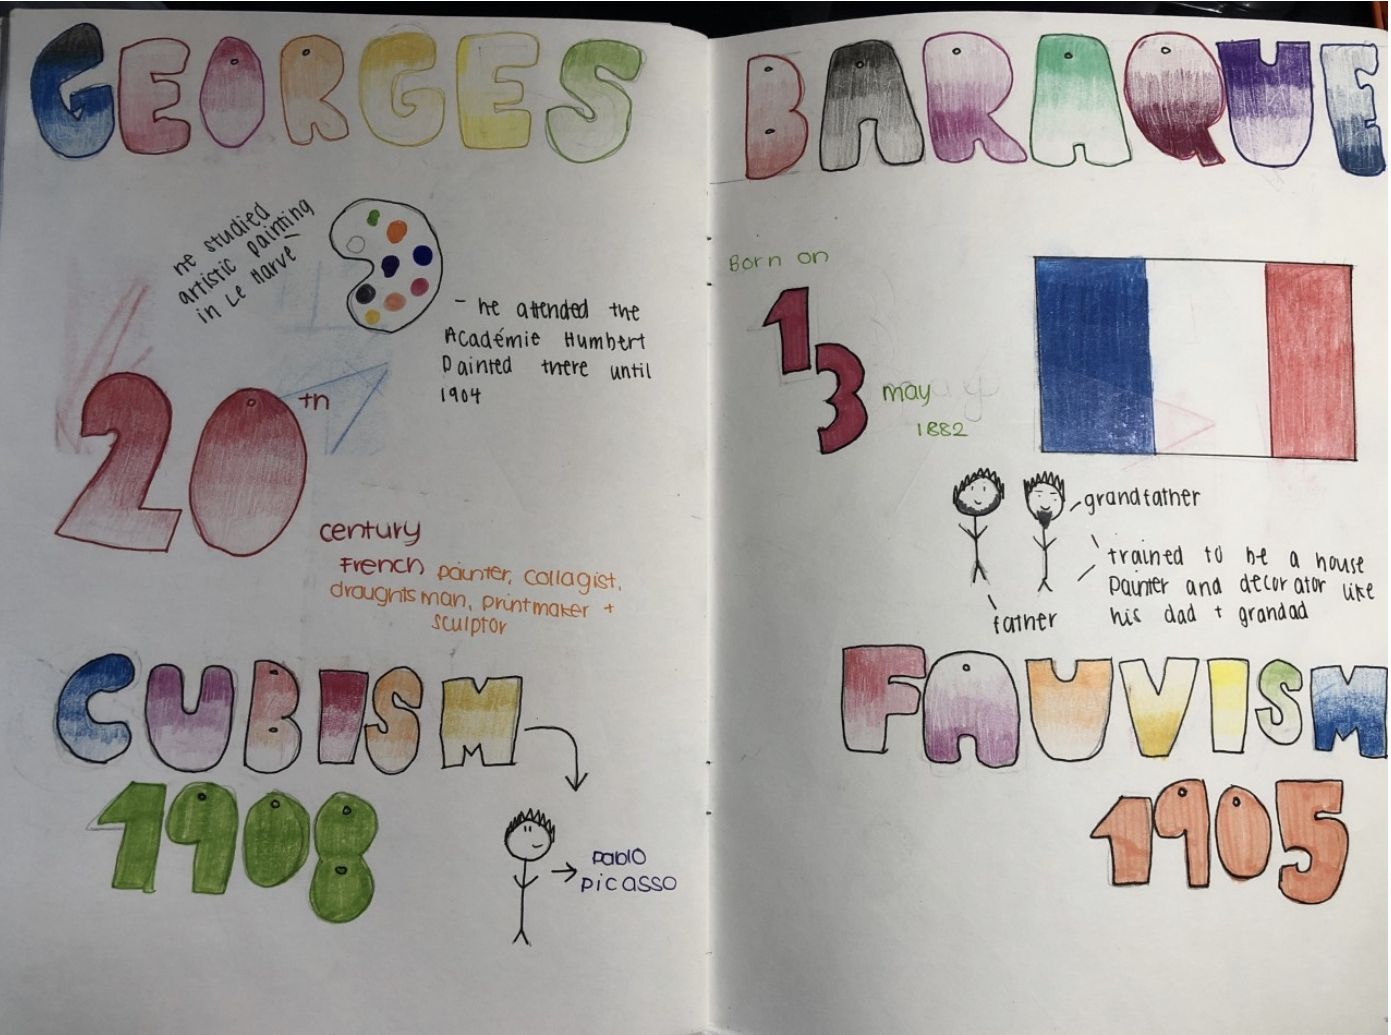 GEORGES
he studied
artistic painting
in Le Harvé
- he attended the
Académie Humbert
Painted there until
1904
20th
century
French painter, collagist,
draughtsman, printmaker +
sculptor
CUBISM
1908
Pablo
Picasso
BARAQUE
Born on
13
may
1882
grandfather
trained to be a house
Painter and decorator like
his dad + grandad
father
FAUVISM
1905